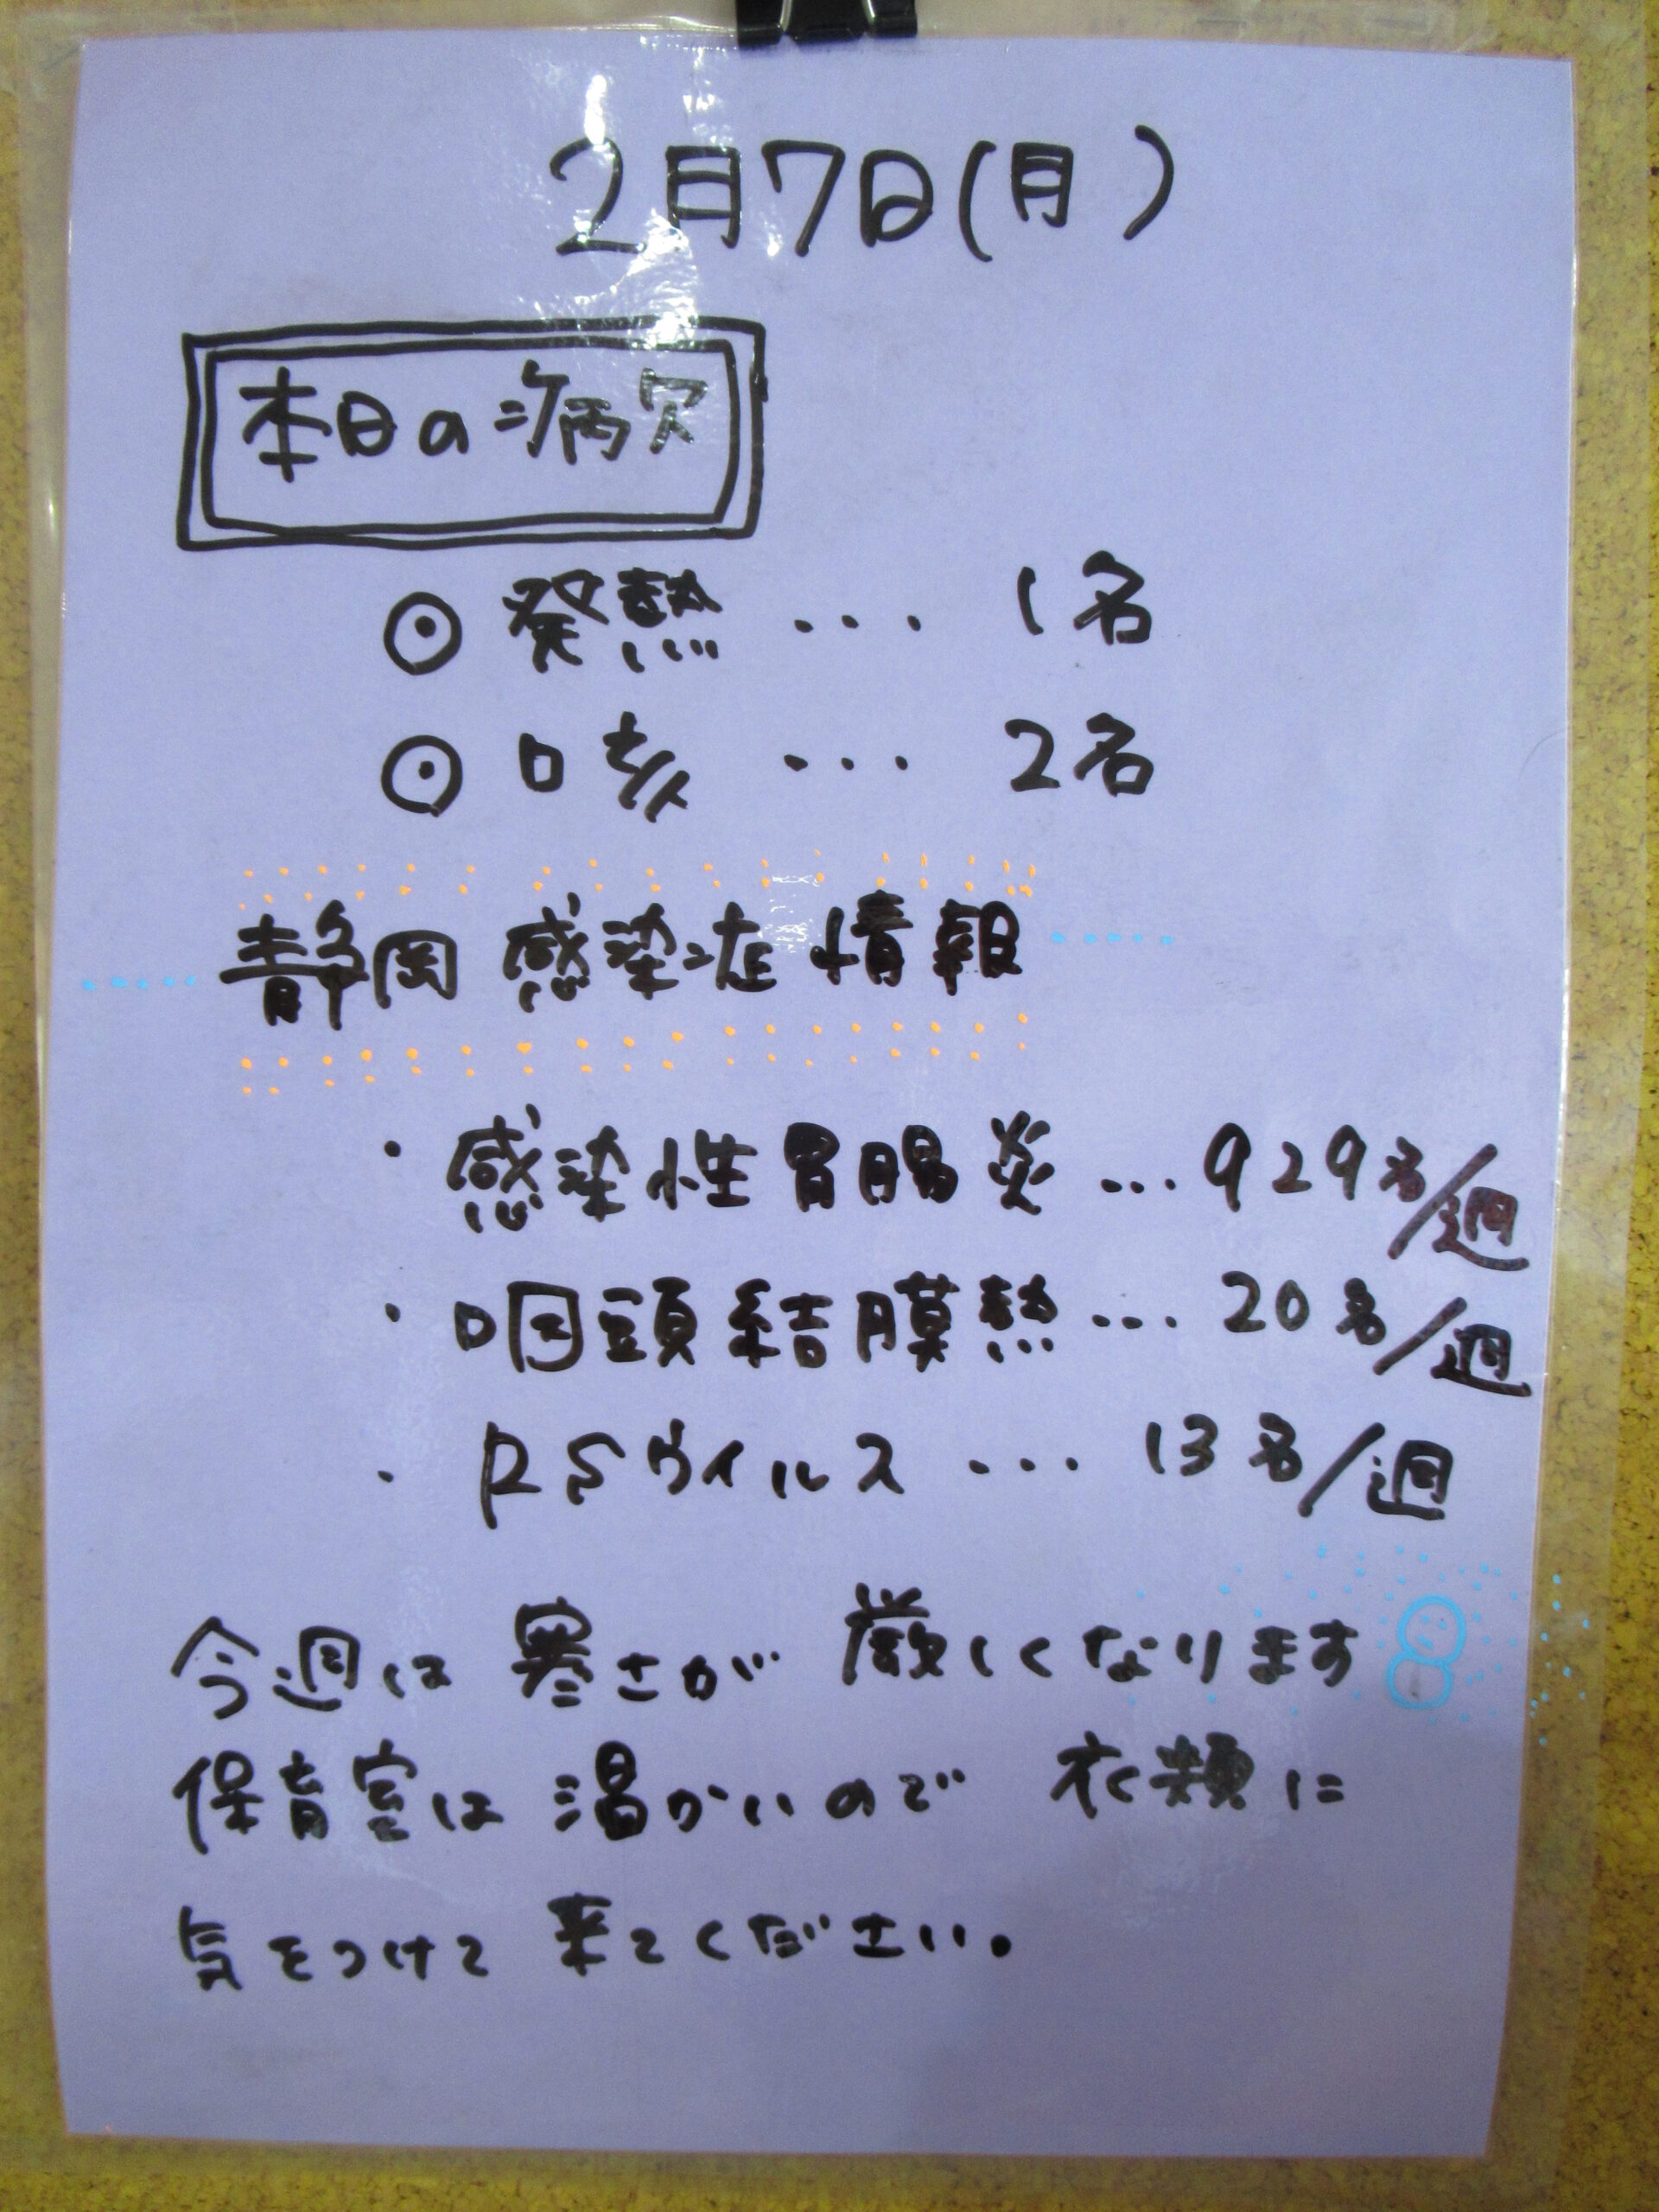 2月7日(月)
本日の病欠
⊙ 発熱 ... 1名
⊙ 咳 ... 2名
静岡 感染症 情報
・感染性胃腸炎 ... 929名/週
・咽頭結膜熱 ... 20名/週
・RSウイルス ... 13名/週
今週は 寒さが 厳しくなります
保育室は 温かいので 衣類に
気をつけて 来てください。